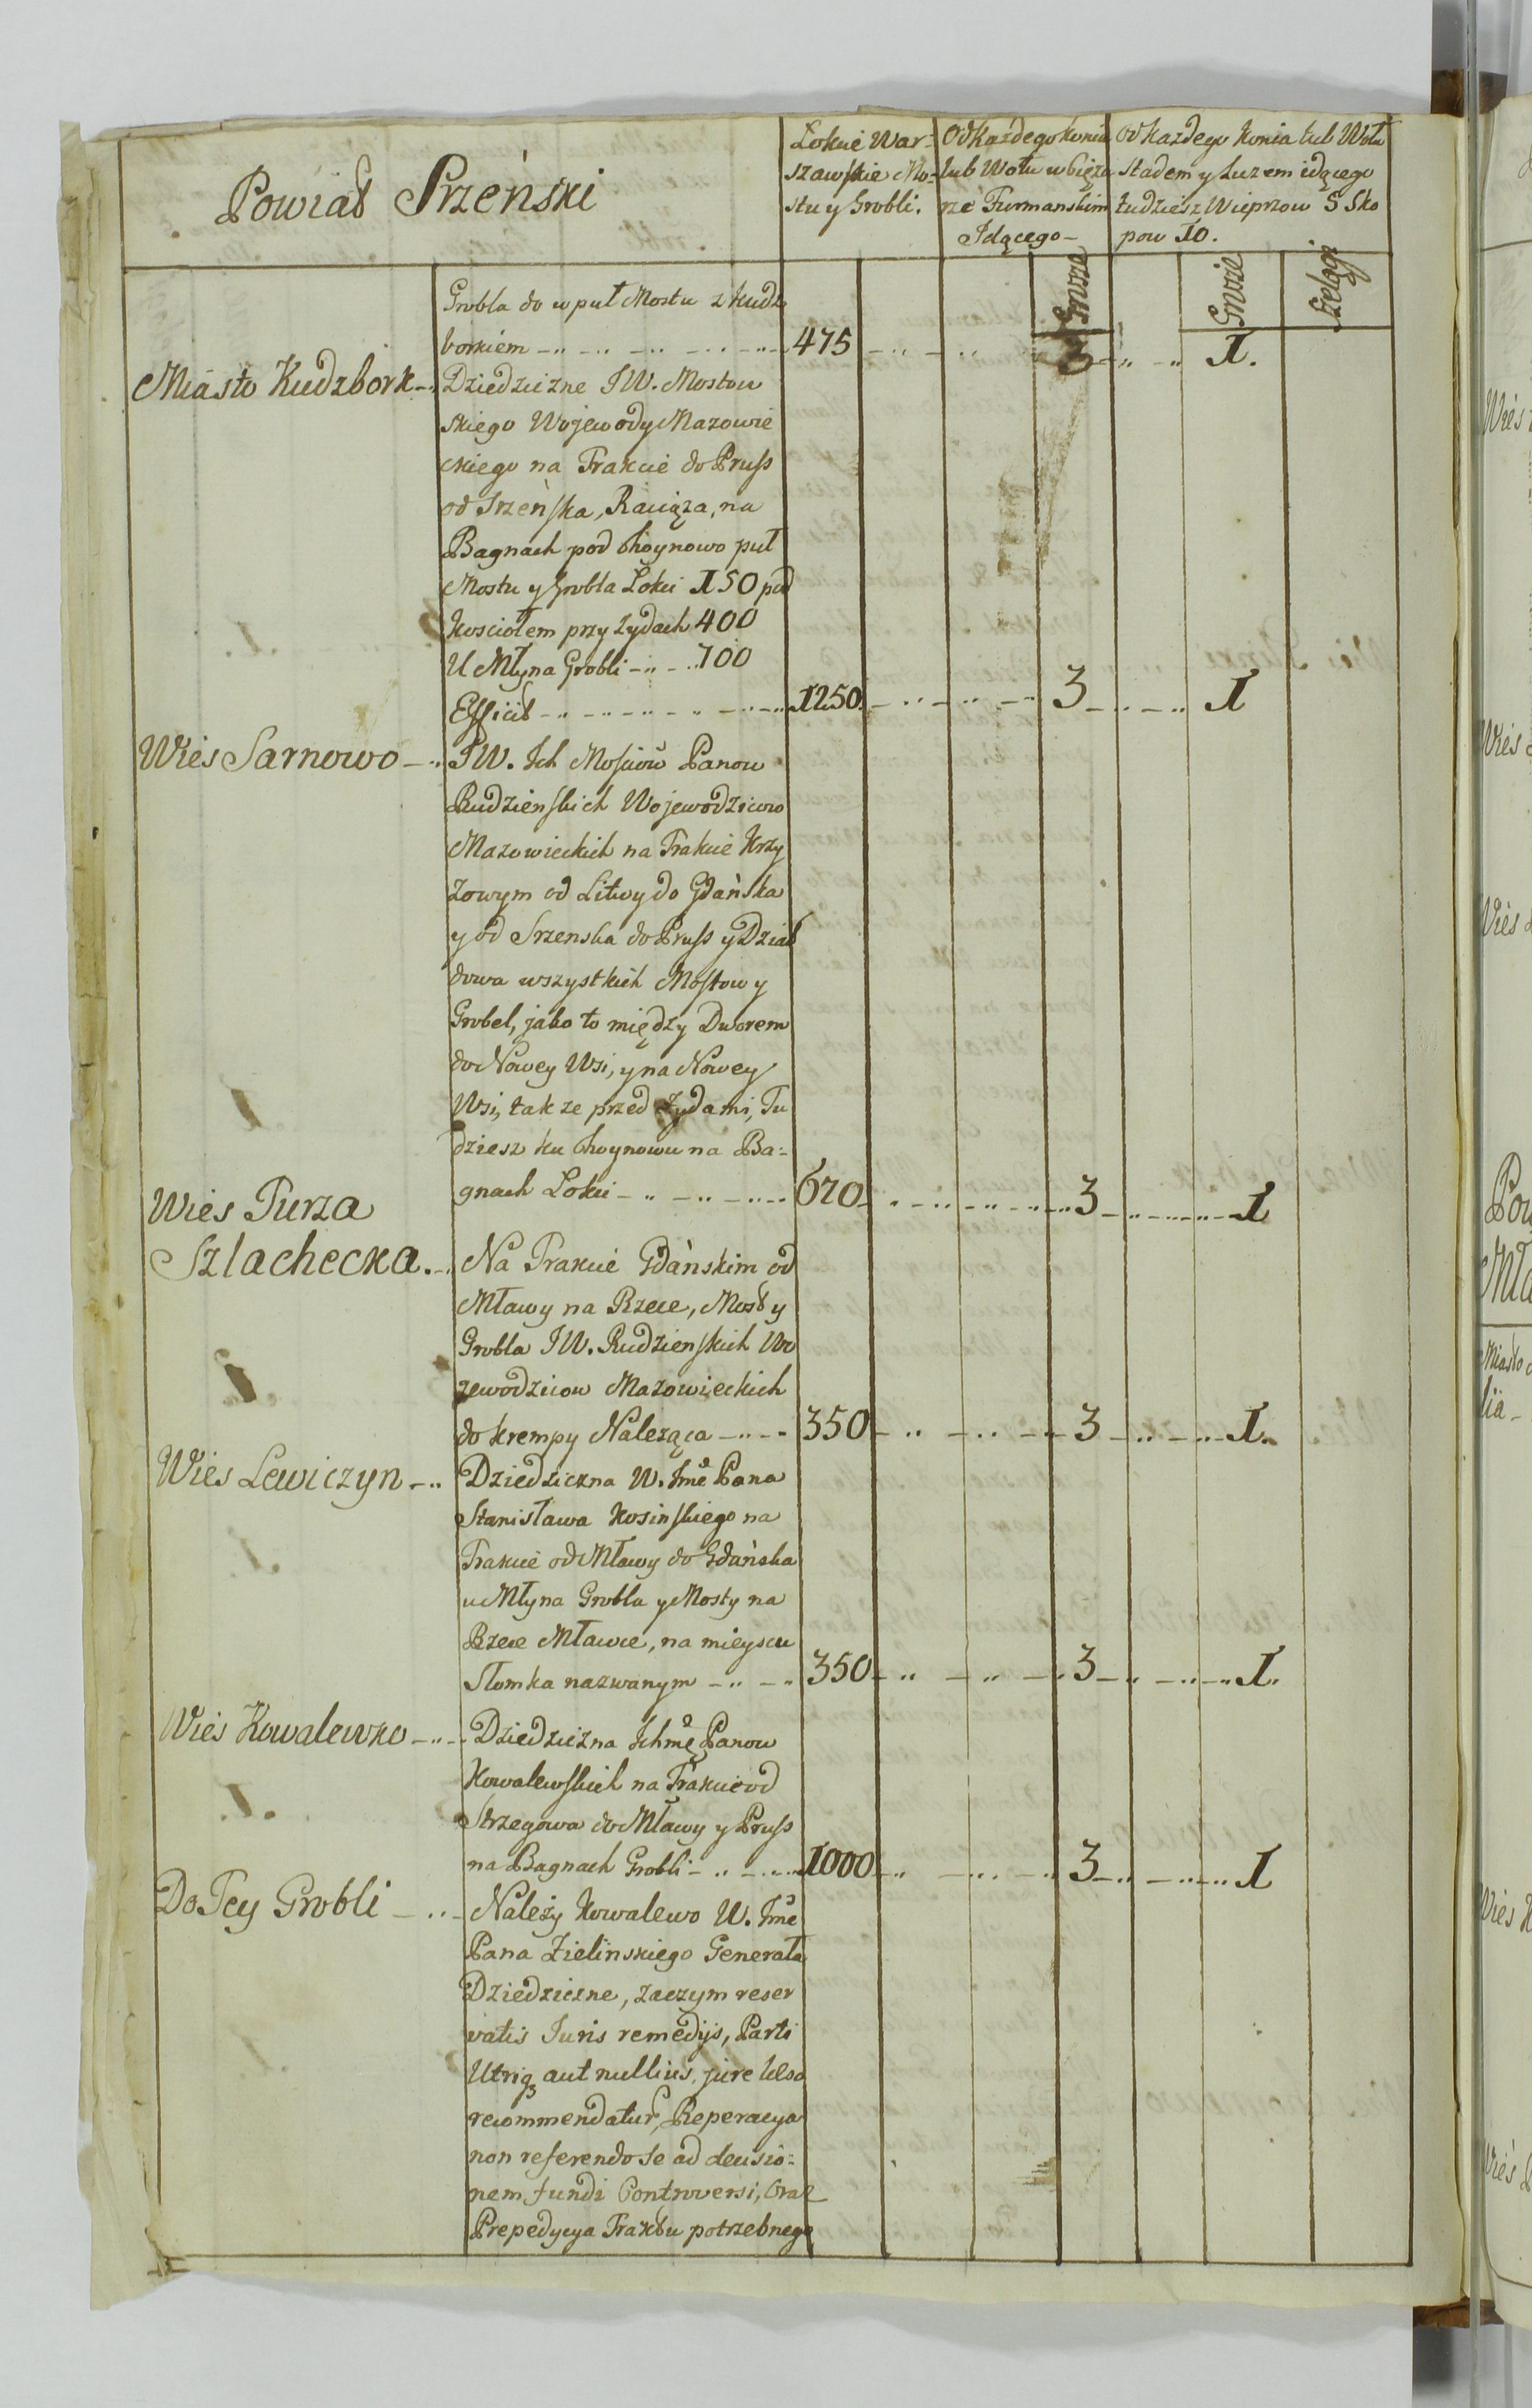 Powiat Srzeński
Łokcie War-
szawskie Mo-
stu y Grobli.
Od każdego konia
lub Wołu w cięża
rze Furmanskim
Idącego -
Od każdego Konia lub Wołu
Stadem y Luzem idącego
tudziesz Wieprzow 5 Sko
pow 10.
Grosze
Grosze
Szelągi
Grobla do w puł Mostu z Kudz
borkiem 475 3 1.
Miasto Kudzbork
Dziedziczne JW. Mostow
skiego Wojewody Mazowie
ckiego na Trakcie do Pruss
od Srzeńska, Raciąża, na
Bagnach pod Choynowo puł
Mostu y Grobla Łokci 150 pod
Kosciołem przy Żydach 400
U Młyna Grobli 700
Efficit 1250. 3 1
Wieś Sarnowo
JW. Ich Mościów Panow
Rudzieńskich Wojewodzicow
Mazowieckich na Trakcie Krzy
żowym od Litwy do Gdańska
y od Srzenska do Pruss y Dział
dowa wszystkich Mostow y
Grobel, jako to między Dworem
do Nowey Wsi, y na Nowey
Wsi, tak ze przed Żydami, Tu
dziesz ku Choynowu na Ba-
gnach Łokci 670 3 1
Wieś Turza
Szlachecka.
Na Trakcie Gdańskim od
Mławy na Rzece, Most y
Grobla JW. Rudzienskich Wo
jewodzicow Mazowieckich
do Krempy Należąca 350 3 1.
Wieś Lewiczyn
Dziedziczna W. Jme Pana
Stanisława Kosinskiego na
Trakcie od Mławy do Gdańska
u Młyna Grobla y Mosty na
Rzece Mławce, na mieyscu
Słomka nazwanym 350 3 1.
Wieś Kowalewko
Dziedziczna Ichmę Panow
Kowalewskich na Trakcie od
Strzegowa do Mławy y Pruss
na Bagnach Grobli 1000 3 1
Do Tey Grobli
Należy Kowalewo W. Jme
Pana Zielinskiego Generała
Dziedziczne, zaczym reser
vatis Juris remedijs, Parti
Utriq3 aut nullius, jure
recommendatur, Reperacya
non referendo se ad decisio-
nem fundi Controversi, Oraz
Prepedycya Traktu potrzebnego